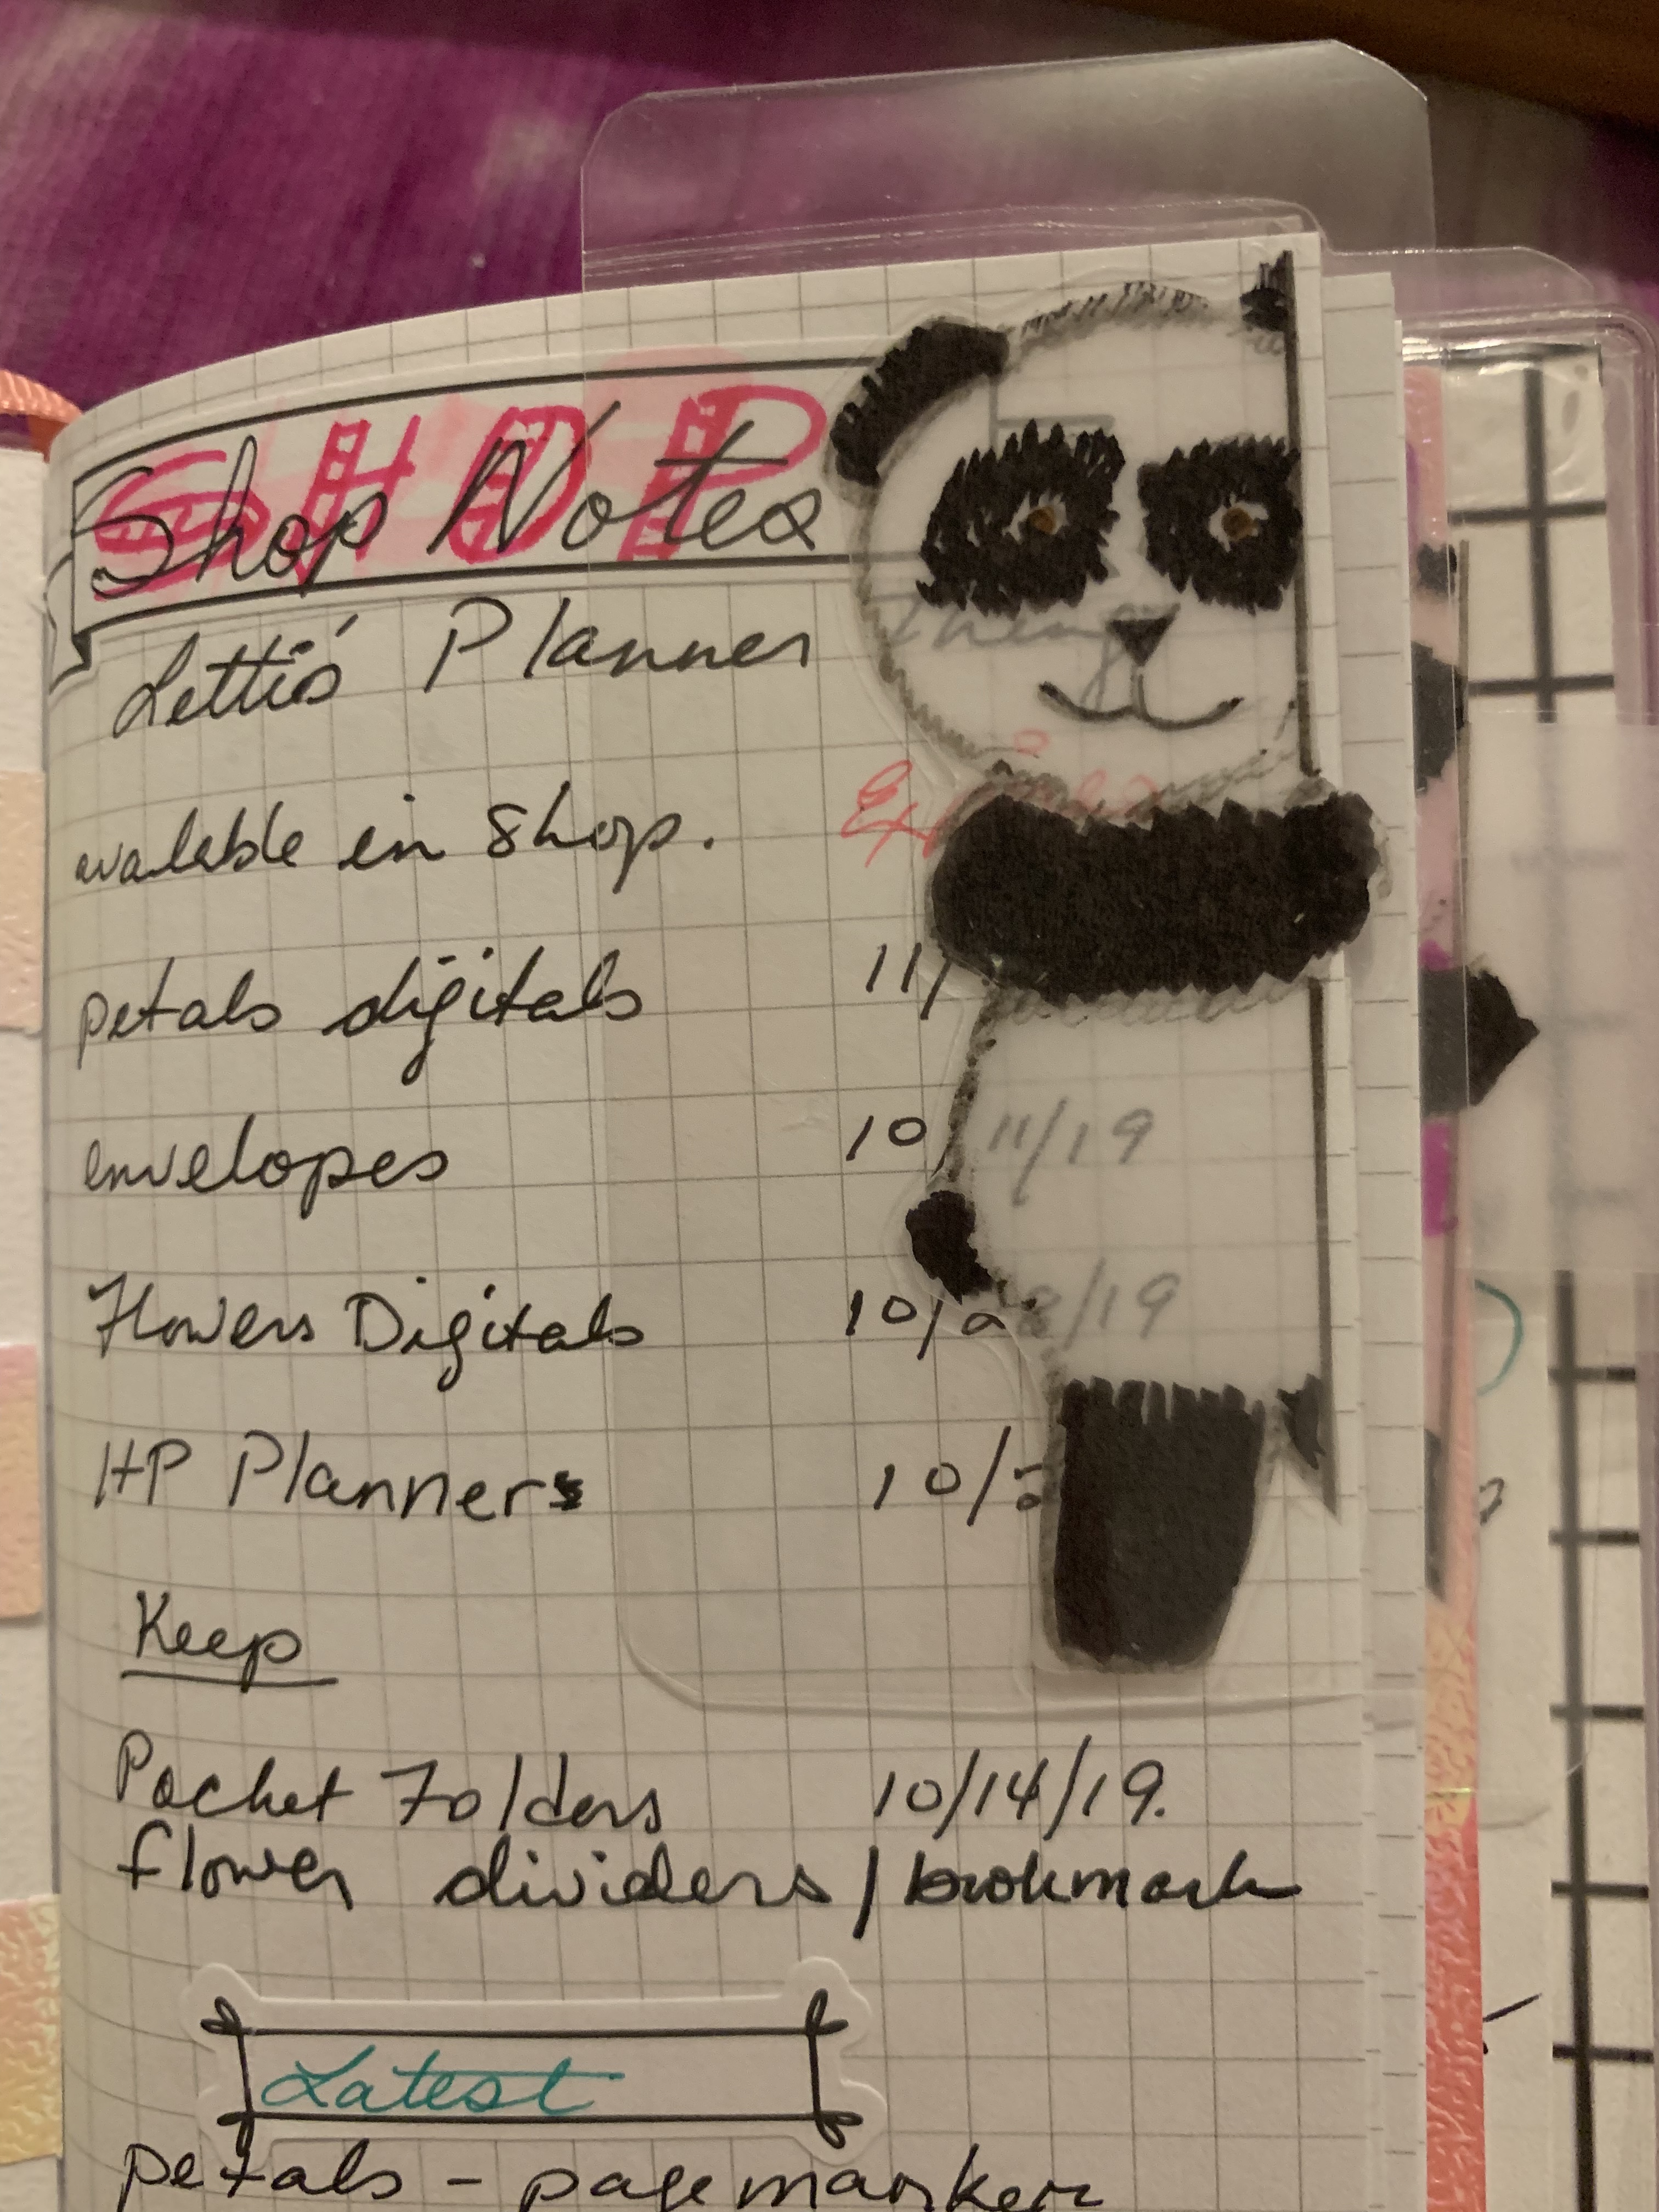 SHOP
Shop Notes
Lettis' Planner
avalable in Shop.
petals digitals 11/
envelopes 10/11/19
Flowers Digitals 10/ /19
HP Planners 10/
Keep
Pocket Folders 10/14/19.
flower dividers / bookmark
Latest
petals - page marker